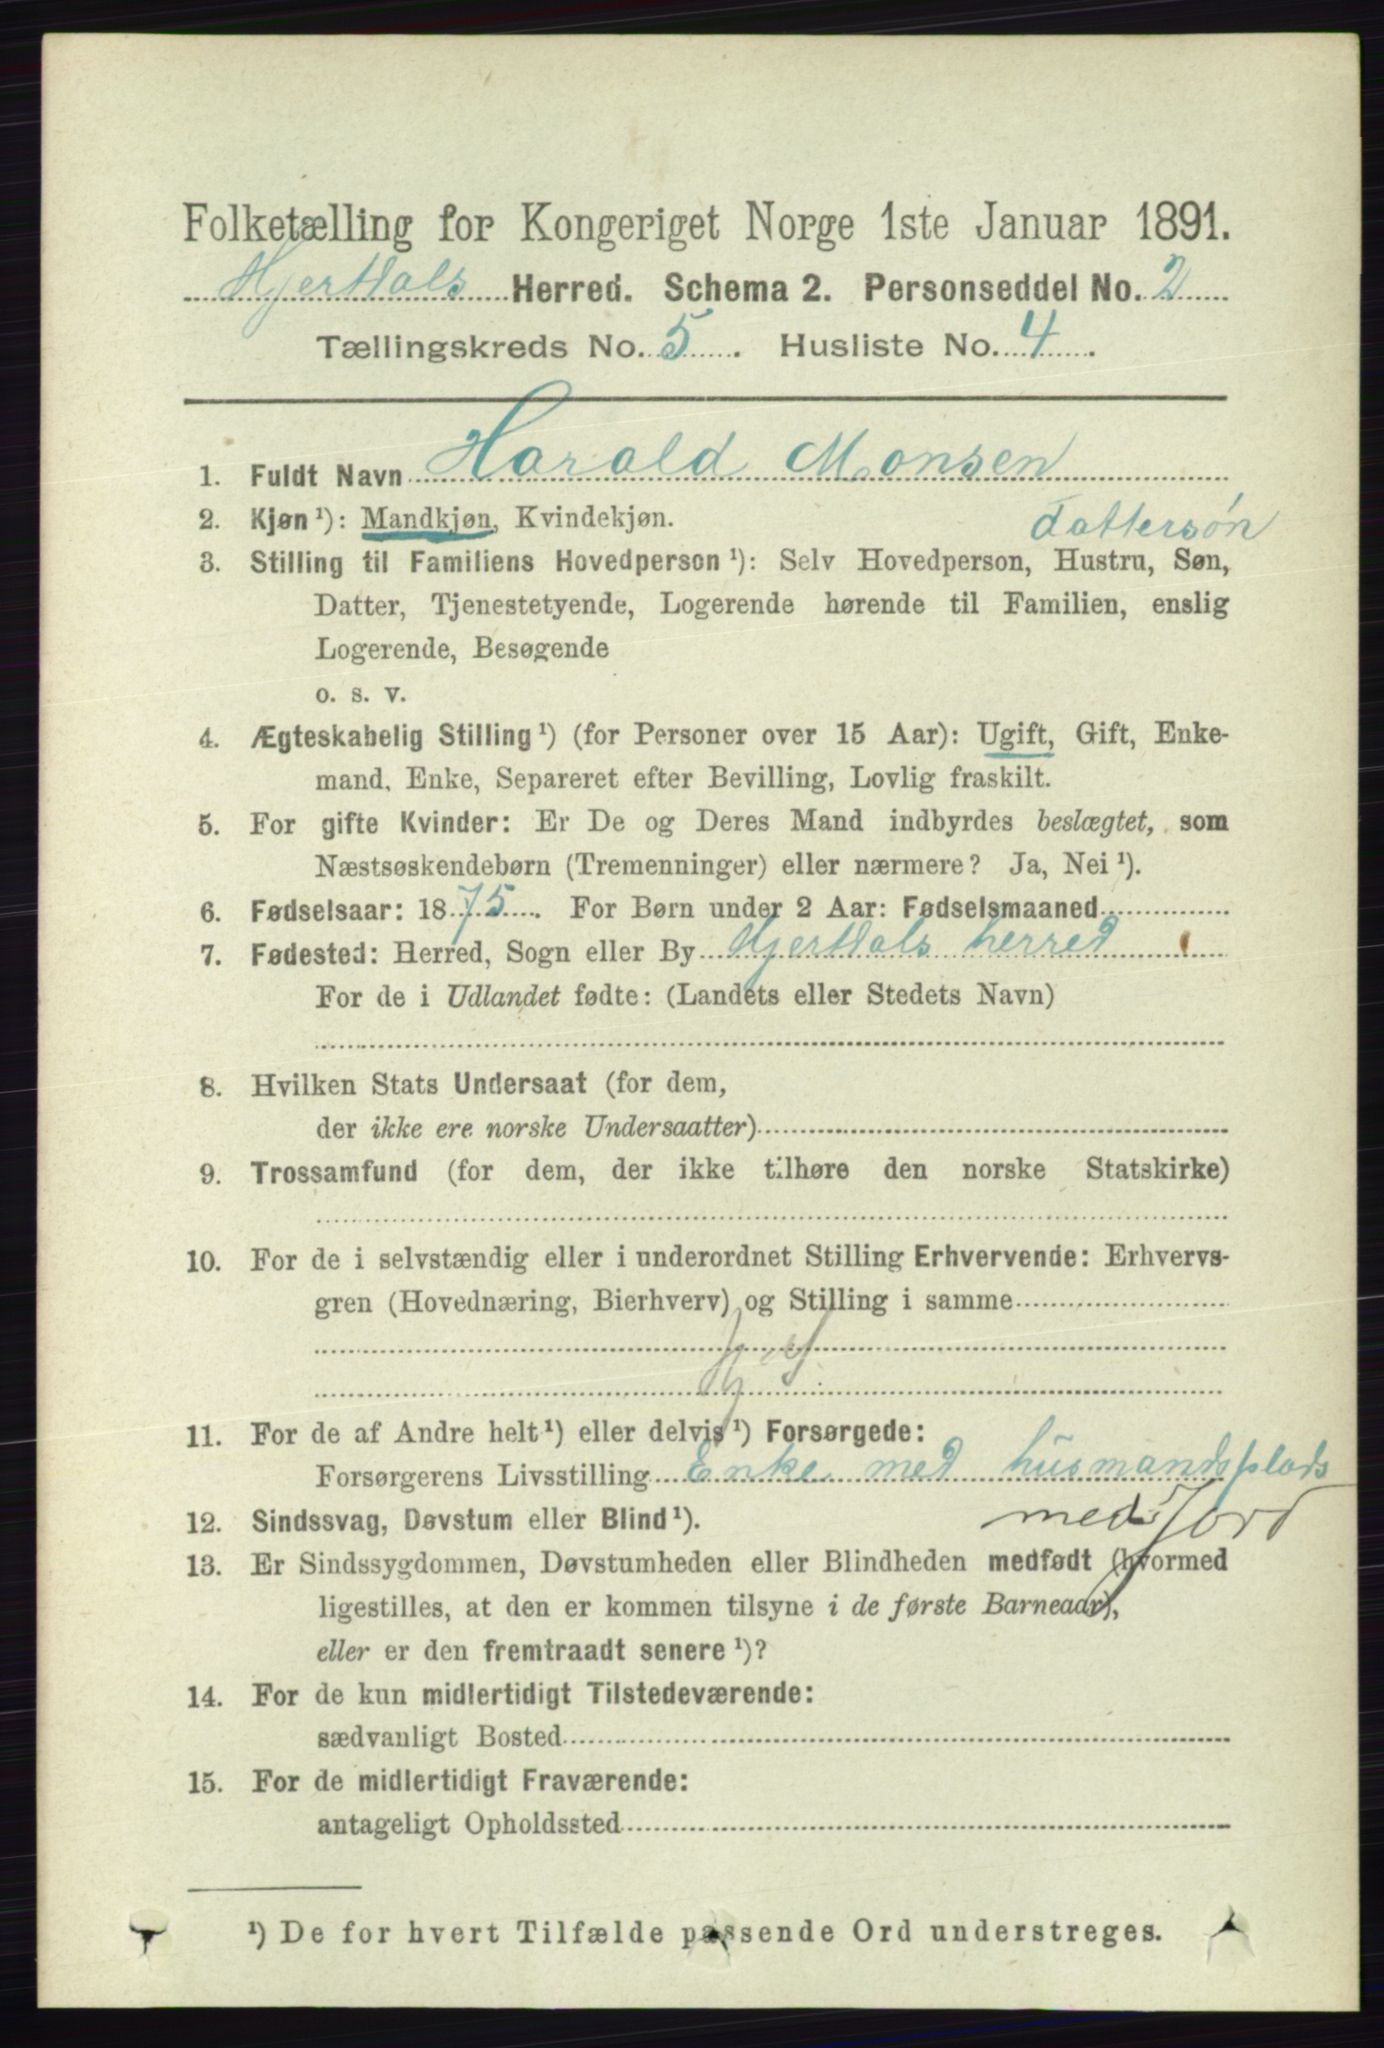 Folketælling for Kongeriget Norge 1ste Januar 1891.
Hjertdals Herred. Schema 2. Personseddel No. 2
Tællingskreds No. 5. Husliste No. 4.
1. Fuldt Navn Harald Monsen
2. Kjøn¹): Mandkjøn, Kvindekjøn. dattersøn
3. Stilling til Familiens Hovedperson¹): Selv Hovedperson, Hustru, Søn,
Datter, Tjenestetyende, Logerende hørende til Familien, enslig
Logerende, Besøgende
o. s. v.
4. Ægteskabelig Stilling¹) (for Personer over 15 Aar): Ugift, Gift, Enke-
mand, Enke, Separeret efter Bevilling, Lovlig fraskilt.
5. For gifte Kvinder: Er De og Deres Mand indbyrdes beslægtet, som
Næstsøskendebørn (Tremenninger) eller nærmere? Ja, Nei¹).
6. Fødselsaar: 1875. For Børn under 2 Aar: Fødselsmaaned
7. Fødested: Herred, Sogn eller By Hjertdals herred
For de i Udlandet fødte: (Landets eller Stedets Navn)
8. Hvilken Stats Undersaat (for dem,
der ikke ere norske Undersaatter)
9. Trossamfund (for dem, der ikke tilhøre den norske Statskirke)
10. For de i selvstændig eller i underordnet Stilling Erhvervende: Erhvervs-
gren (Hovednæring, Bierhverv) og Stilling i samme
11. For de af Andre helt¹) eller delvis¹) Forsørgede:
Forsørgerens Livsstilling Enke med husmandsplads
12. Sindssvag, Døvstum eller Blind¹). med Jord
13. Er Sindssygdommen, Døvstumheden eller Blindheden medfødt (hvormed
ligestilles, at den er kommen tilsyne i de første Barneaar),
eller er den fremtraadt senere¹)?
14. For de kun midlertidigt Tilstedeværende:
sædvanligt Bosted
15. For de midlertidigt Fraværende:
antageligt Opholdssted
¹) De for hvert Tilfælde passende Ord understreges.